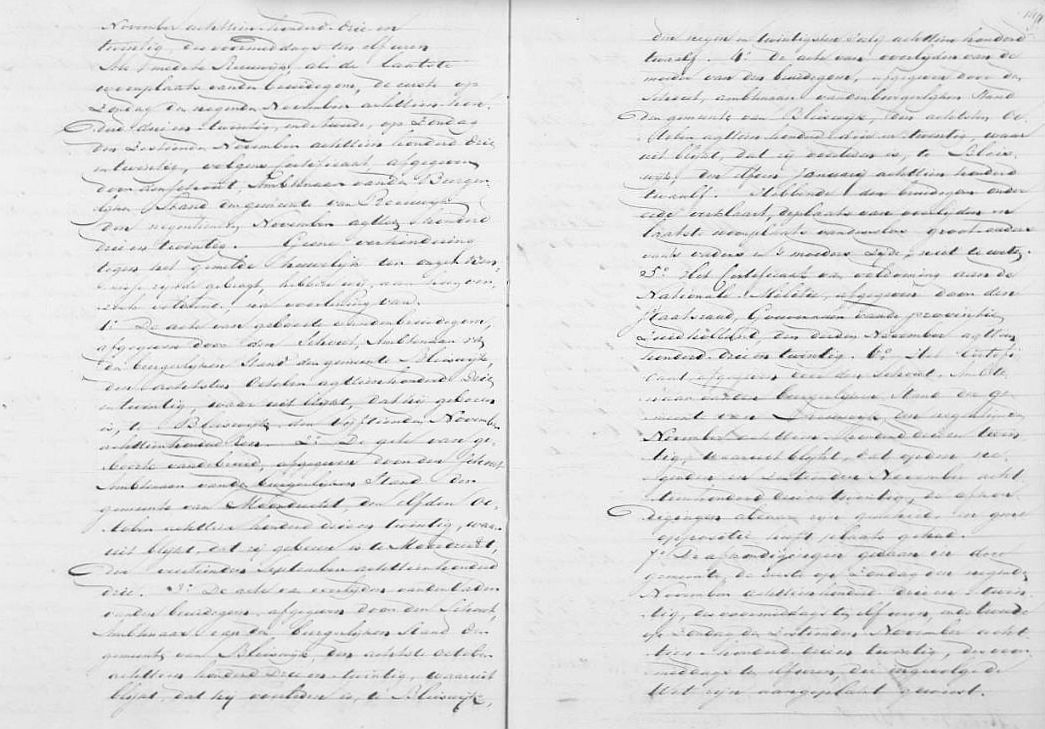 November achttien honderd drie en
twintig, des voormiddags ten elf uren
te Reeuwijk, als de laatste
woonplaats van den bruidegom, de eerste op
Zondag den negenden November achttien hon
derd drie en twintig, en de tweede, op Zondag
den Zestienden November achttien honderd drie
en twintig, volgens certificaat afgegeven
door den schout, Ambtenaar van den Burger
lijken Stand der gemeente van Reeuwijk
den negentienden November agttien honderd
drie en twintig. Geene verhindering
tegen het gemelde Huwelijk ter onzer ken
nisse zijnde gebragt, hebben wij, aan hun ver
zoek voldoende, na voorlezing van.
1o. De acte van geboorte van den bruidegom,
afgegeven door den Schout, Ambtenaar van
den burgerlijken Stand der gemeente Bleiswijk,
den achtsten October agttien honderd drie
en twintig, waar uit blijkt, dat hij geboren
is, te Bleiswijk, den vijftienden November
achttien honderd een. 2o. De acte van ge
boorte van de bruid, afgegeven door den Schout
Ambtenaar van den burgerlijken Stand der
gemeente van Moordrecht, den elfden Oc
tober achttien honderd drie en twintig, waar
uit blijkt, dat zij geboren is te Moordrecht,
den September achttien honderd
drie. 3o. De acte van overlijden van den vader
van den bruidegom, afgegeven door den Schout,
Ambtenaar van den burgerlijken Stand der
gemeente van Bleiswijk, den achtste October
achttien honderd drie en twintig, waar uit
blijkt, dat hij overleden is, te Bleiswijk,
den negen en twintigsten Julij achttien honderd
twaalf. 4o. De acte van overlijden van de
moeder van den bruidegom, afgegeven door den
Schout, ambtenaar van den burgerlijken Stand
der gemeente van Bleiswijk, den achtsten Oc
tober agttien honderd drie en twintig, waar
uit blijkt, dat zij overleden is, te Bleis
wijk, den Januarij achttien honderd
twaalf. Hebbende den bruidegom onder
eede verklaart, de plaats van overlijden en
laatste woonplaats van groot ouders
van vaders en 's moeders zijde, niet te weten.
5o. Het Certificaat van voldoening aan de
Nationale Militie, afgegeven door den
Staatsraad, Gouverneur van de provincie
Zuidholland, den derden November agttien
honderd drie en twintig. 6o. Het Certifi
caat afgegeven door den Schout Ambte
naar van den burgerlijken Stand der ge
meente van Reeuwijk, den negentienden
November achttien honderd drie en twin
tig, waaruit blijkt, dat op den ne
genden en Zestienden November acht
tien honderd drie en twintig, de afkon
digingen aldaar zijn geschied, en geen
oppositie heeft plaats gehad.
7o. De afkondigingen gedaan in deze
gemeente, de eerste op Zondag den negenden
November achttien honderd drie en twin
tig, des voormiddags te elf uren, en de tweede
op Zondag den Zestienden November acht
tien honderd drie en twintig, des voor
middags te elf uren, die ingevolge de
Wet zijn aangeplakt geweest.